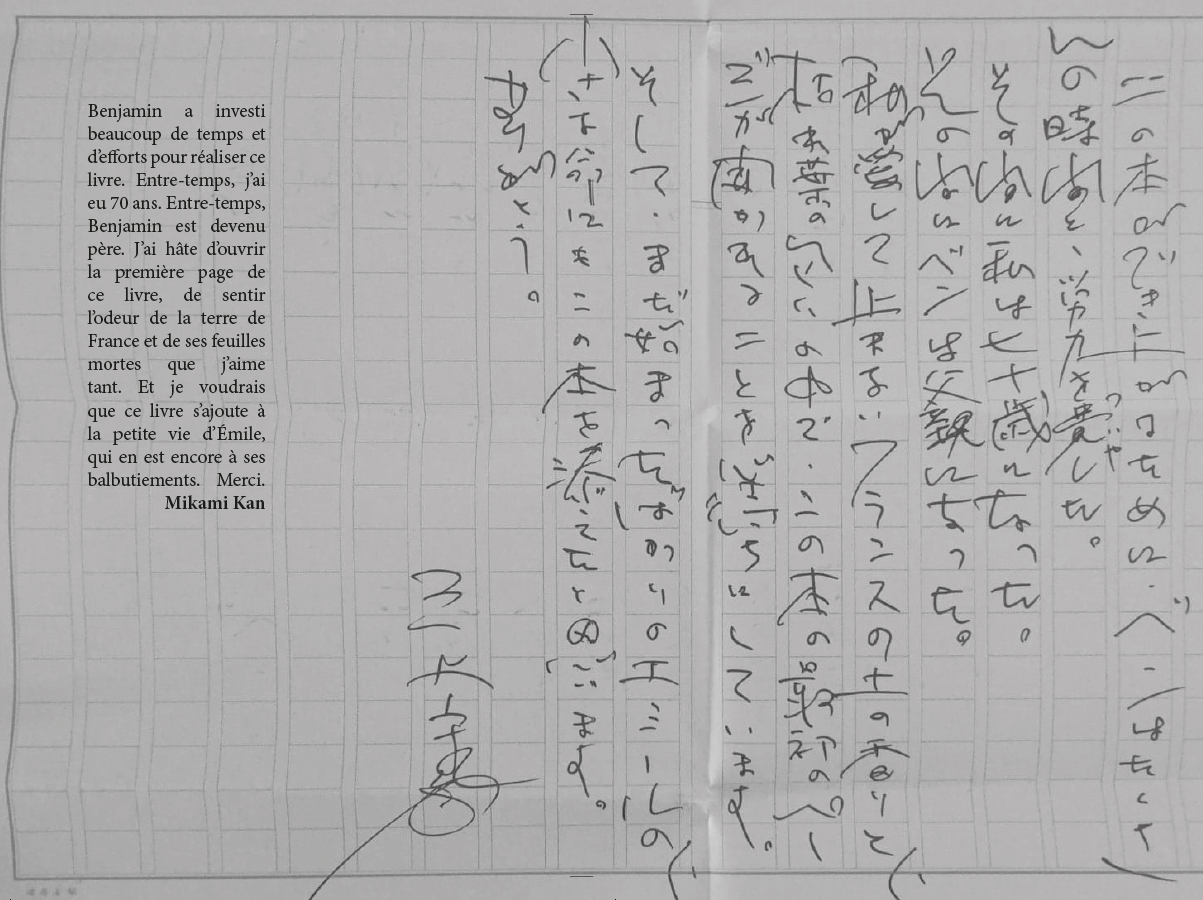 この本ができ上がるために、ベンはたくさ
んの時間と、労力を費した。
ついや
その間に私は七十歳になった。
その間にベンは父親になった。
私が愛して止まないフランスの土の香りと
枯れ葉のにおいの中で、この本の最初のペー
ジが開かれることを にしています。
そして、まだ始まったばかりのエミールの
この本を と思います。
ありがとう。
三上寛
Benjamin a investi
beaucoup de temps et
d’efforts pour réaliser ce
livre. Entre-temps, j’ai
eu 70 ans. Entre-temps,
Benjamin est devenu
père. J’ai hâte d’ouvrir
la première page de
ce livre, de sentir
l’odeur de la terre de
France et de ses feuilles
mortes que j’aime
tant. Et je voudrais
que ce livre s’ajoute à
la petite vie d’Émile,
qui en est encore à ses
balbutiements. Merci.
Mikami Kan